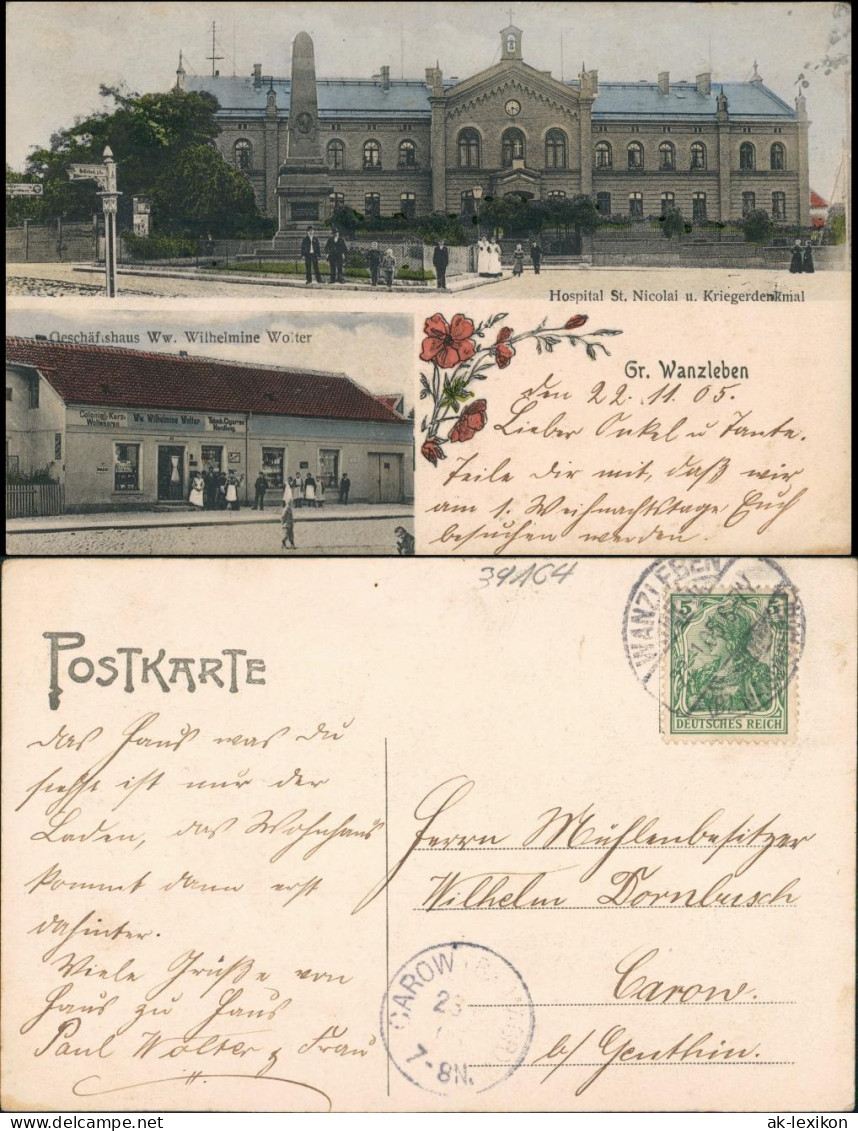 Hospital St. Nicolai u. Kriegerdenkmal
Geschäftshaus Ww. Wilhelmine Wolter
Colonial- Kurz-
Wollwaren
Ww. Wilhelmine Wolter
Tabak Cigarren
Handlung
Gr. Wanzleben
den 22. 11. 05.
Lieber Onkel u Tante.
Teile Dir mit, daß wir
am 1. Weihnachtstage Euch
besuchen werden.
39164
POSTKARTE
WANZLEBEN
5 5
DEUTSCHES REICH
das Haus was Du
siehst ist nur der
Laden, das Wohnhaus
kommt dann erst
dahinter.
Viele Grüße von
Haus zu Haus
Paul Wolter & Frau
Herrn Mühlenbesitzer
Wilhelm Dornbusch
Carow.
b/ Genthin.
CAROW
7-8N.
www.ansichtskarten-lexikon.de
ak-lexikon.com